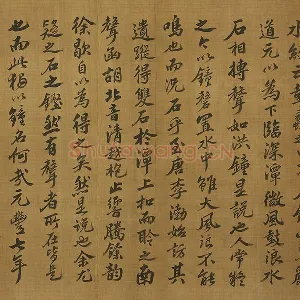 水經
道元以為下臨深潭微風鼓浪水
石相搏聲如洪鐘是說也人常疑
之今以鐘磬置水中雖大風浪不能
鳴也而況石乎至唐李渤始訪其
遺蹤得雙石於潭上扣而聆之南
聲函胡北音清越枹止響騰餘韻
徐歇自以為得之矣然是說也余尤
疑之石之鏗然有聲者所在皆是
也而此獨以鐘名何哉元豐七年